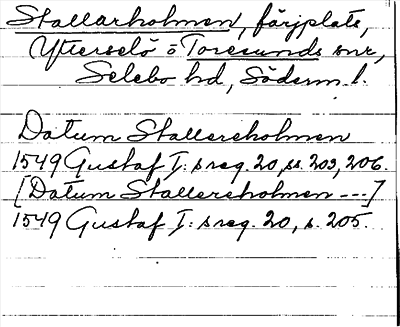 Stallarholmen, färjplats,
Ytterselö o Toresunds snr,
Selebo hd, Söderm. l.
Datum Stallereholmen
1549 Gustaf I:s reg. 20, ss. 203, 206.
[Datum Stallersholmen ---]
1549 Gustaf I:s reg. 20, s. 205.